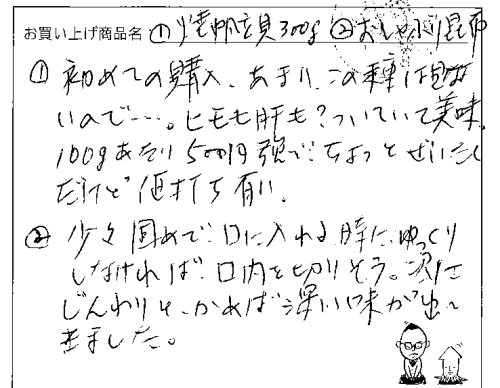 お買い上げ商品名 ①焼帆立貝300g ②おしゃぶり昆布
① 初めての購入、あまり、この種は見ない
いので…。ヒモも肝も?ついていて美味。
100gあたり500円強で、ちょっとぜいたく
だけど値打ち有り。
② 少々固めで口に入れる時に、ゆっくり
しなければ口内を切りそう。次に
じんわりと、かめば深い味が出て
きました。